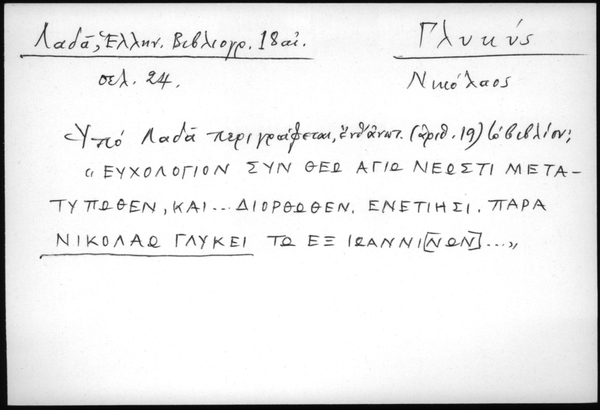 Λαδᾶ, Ἑλλην. Βιβλιογρ. 18 αἰ.
Γλυκύς
σελ. 24.
Νικόλαος
Ὑπό Λαδᾶ περιγράφεται, ἐνθ' ἀνωτ. (ἀριθ. 19) τό βιβλίον;
«ΕΥΧΟΛΟΓΙΟΝ ΣΥΝ ΘΕΩ ΑΓΙΩ ΝΕΩΣΤΙ ΜΕΤΑ-
ΤΥΠΩΘΕΝ, ΚΑΙ... ΔΙΟΡΘΩΘΕΝ. ΕΝΕΤΙΗΣΙ. ΠΑΡΑ
ΝΙΚΟΛΑΩ ΓΛΥΚΕΙ ΤΩ ΕΞ ΙΩΑΝΝΙ[ΝΩΝ]...»